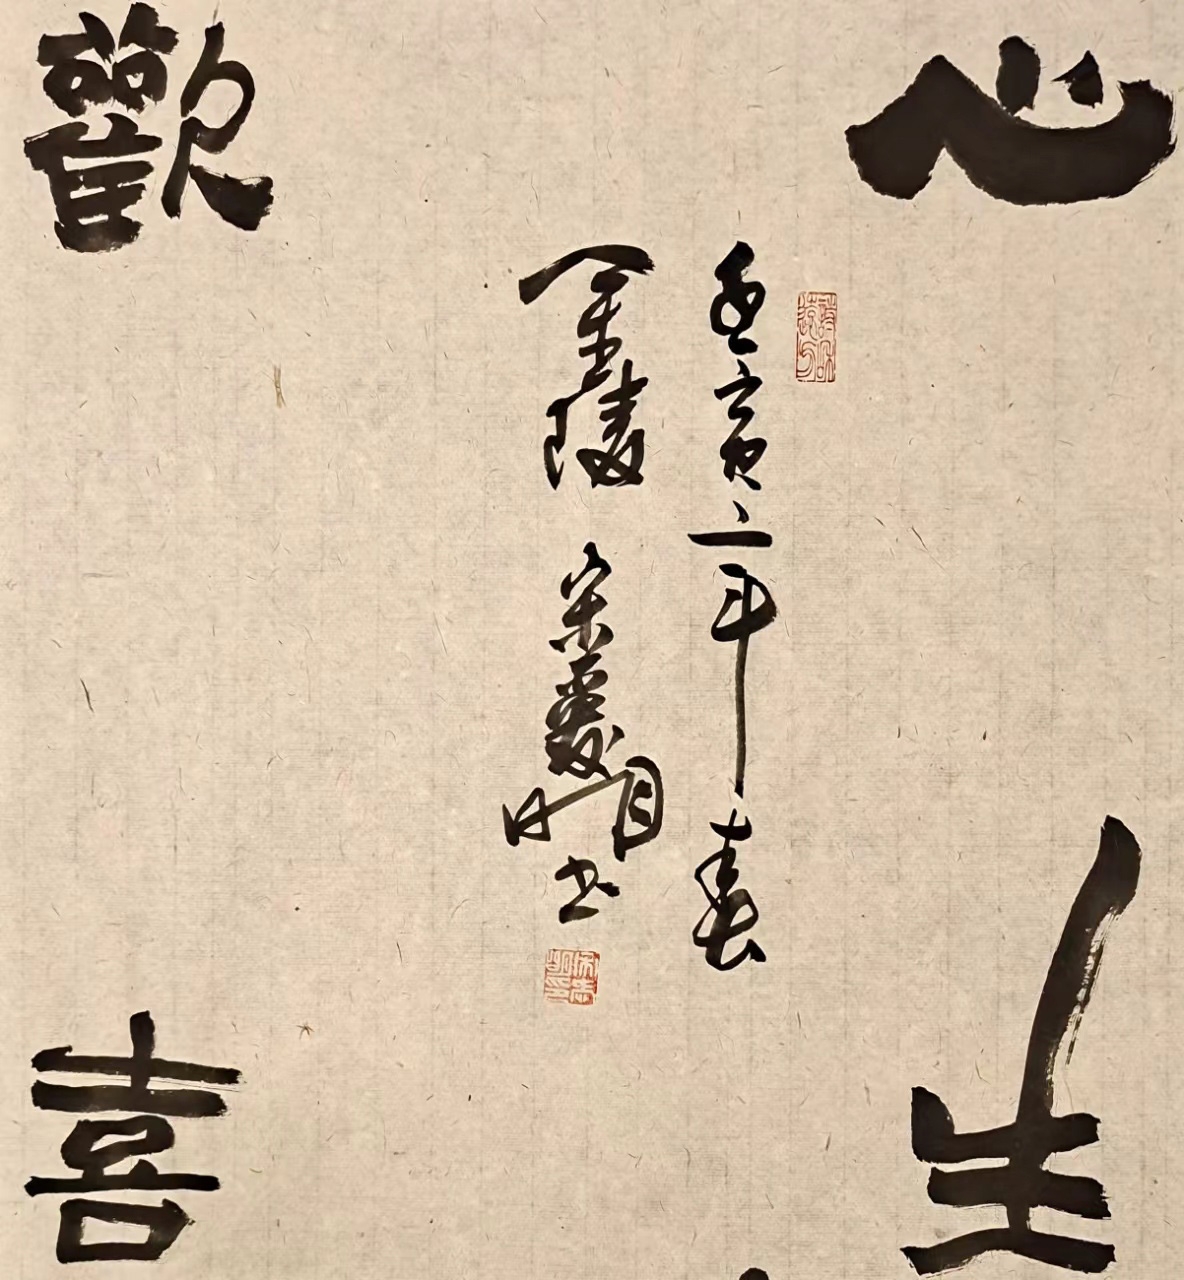 心生
壬寅之年春
金陵 宋愛明书
歡喜